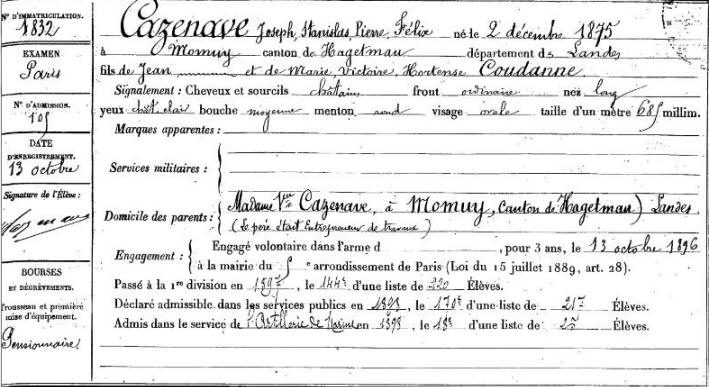 N° D'IMMATRICULATION.
1832
EXAMEN
Paris
N° D'ADMISSION.
105
DATE
D'ENREGISTREMENT.
13 octobre
Signature de l'Élève :
Cazenave
BOURSES
ET DÉGRÈVEMENTS.
Trousseau et première
mise d'équipement.
Pensionnaire
Cazenave Joseph, Stanislas, Pierre, Félix né le 2 décembre 1875
à Momuy canton de Hagetmau département des Landes
fils de Jean et de Marie, Victoire, Hortense Coudanne
Signalement : Cheveux et sourcils châtains front ordinaire nez long
yeux chât. clair bouche moyenne menton rond visage ovale taille d'un mètre 685 millim.
Marques apparentes :
Services militaires :
Domicile des parents : Madame Vve Cazenave, à Momuy, (Canton de Hagetmau) Landes.
(Le père était Entrepreneur de travaux)
Engagement : Engagé volontaire dans l'arme d , pour 3 ans, le 13 octobre 1896
à la mairie du 5e arrondissement de Paris (Loi du 15 juillet 1889, art. 28).
Passé à la 1re division en 1897, le 144e d'une liste de 220 Élèves.
Déclaré admissible dans les services publics en 1898, le 170e d'une liste de Élèves.
Admis dans le service de l'Artillerie de Marine en 1898, le 18e d'une liste de Élèves.